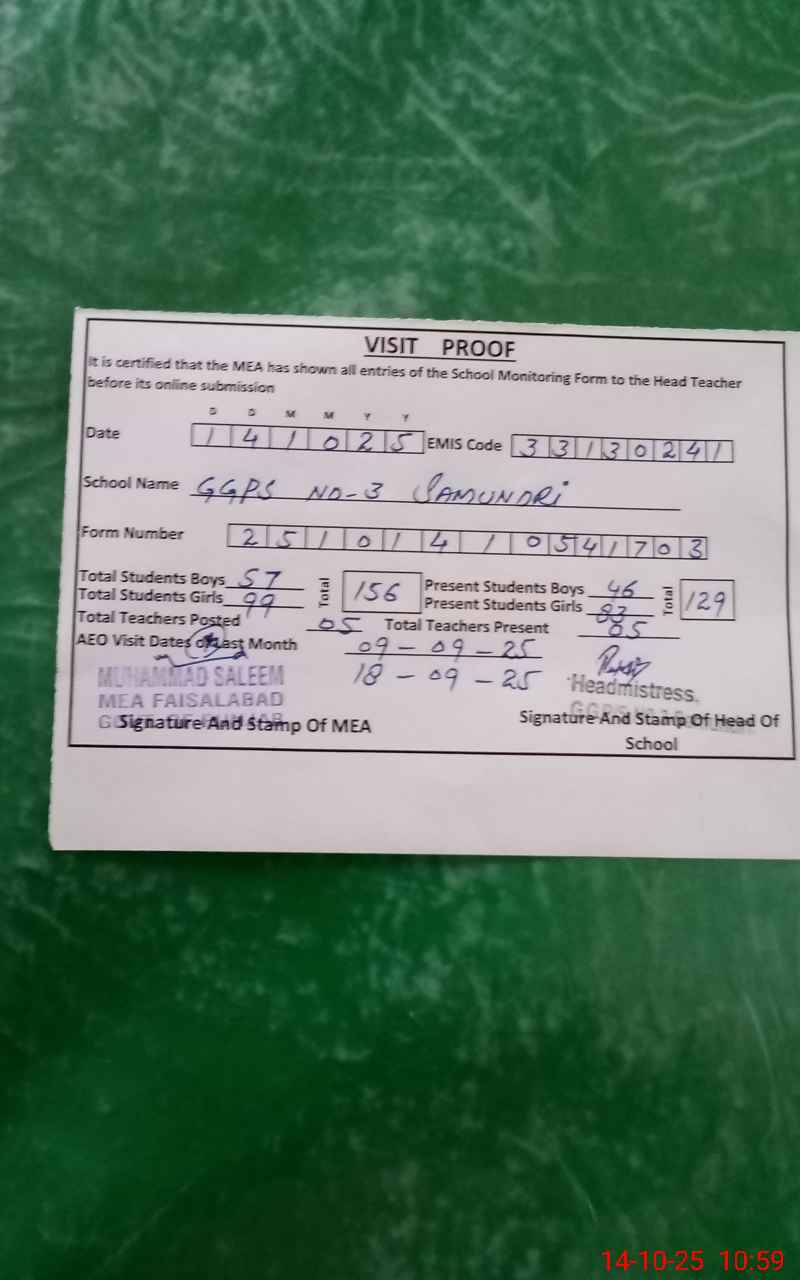 VISIT PROOF
It is certified that the MEA has shown all entries of the School Monitoring Form to the Head Teacher
before its online submission
D D M M Y Y
Date 1 4 1 0 2 5 EMIS Code 3 3 1 3 0 2 4 1
School Name GGPS NO-3 SAMUNDRI
Form Number 2 5 1 0 1 4 1 0 5 4 1 7 0 3
Total Students Boys 57 Total 156 Present Students Boys 46 Total 129
Total Students Girls 99 Present Students Girls 83
Total Teachers Posted 05 Total Teachers Present 05
AEO Visit Dates of Last Month 09-09-25
18-09-25
MUHAMMAD SALEEM
MEA FAISALABAD
Headmistress
Signature And Stamp Of MEA
Signature And Stamp Of Head Of
School
14-10-25 10:59